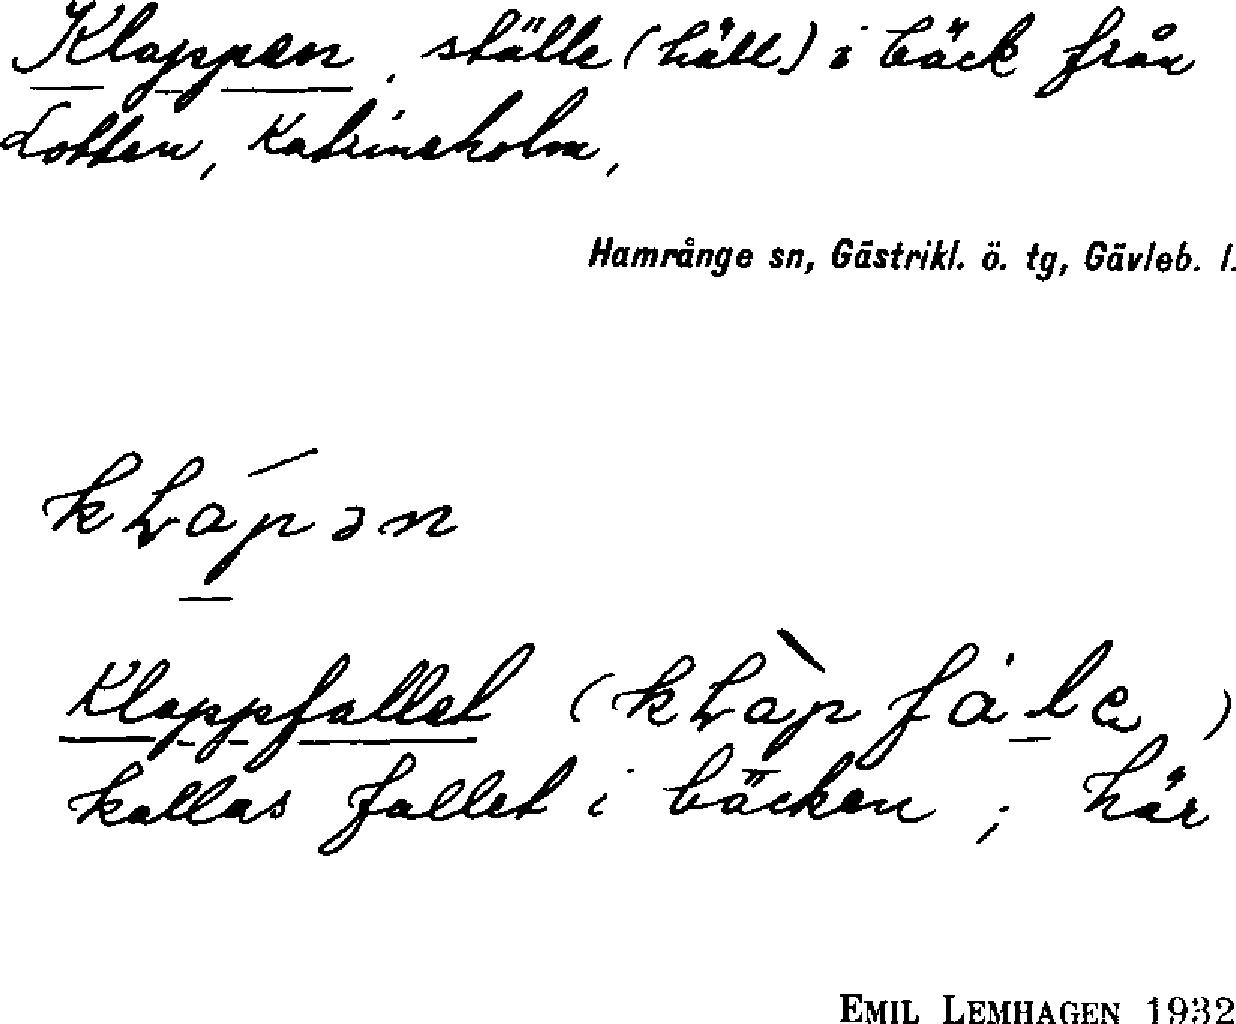 Klappen, ställe (häll) i bäck från
Lotten, Katrineholm,
Hamrånge sn, Gästrikl. ö. tg, Gävleb. l.
kʟápən
Klappfallet (kʟàpfȧle)
kallas fallet i bäcken; här
EMIL LEMHAGEN 1932